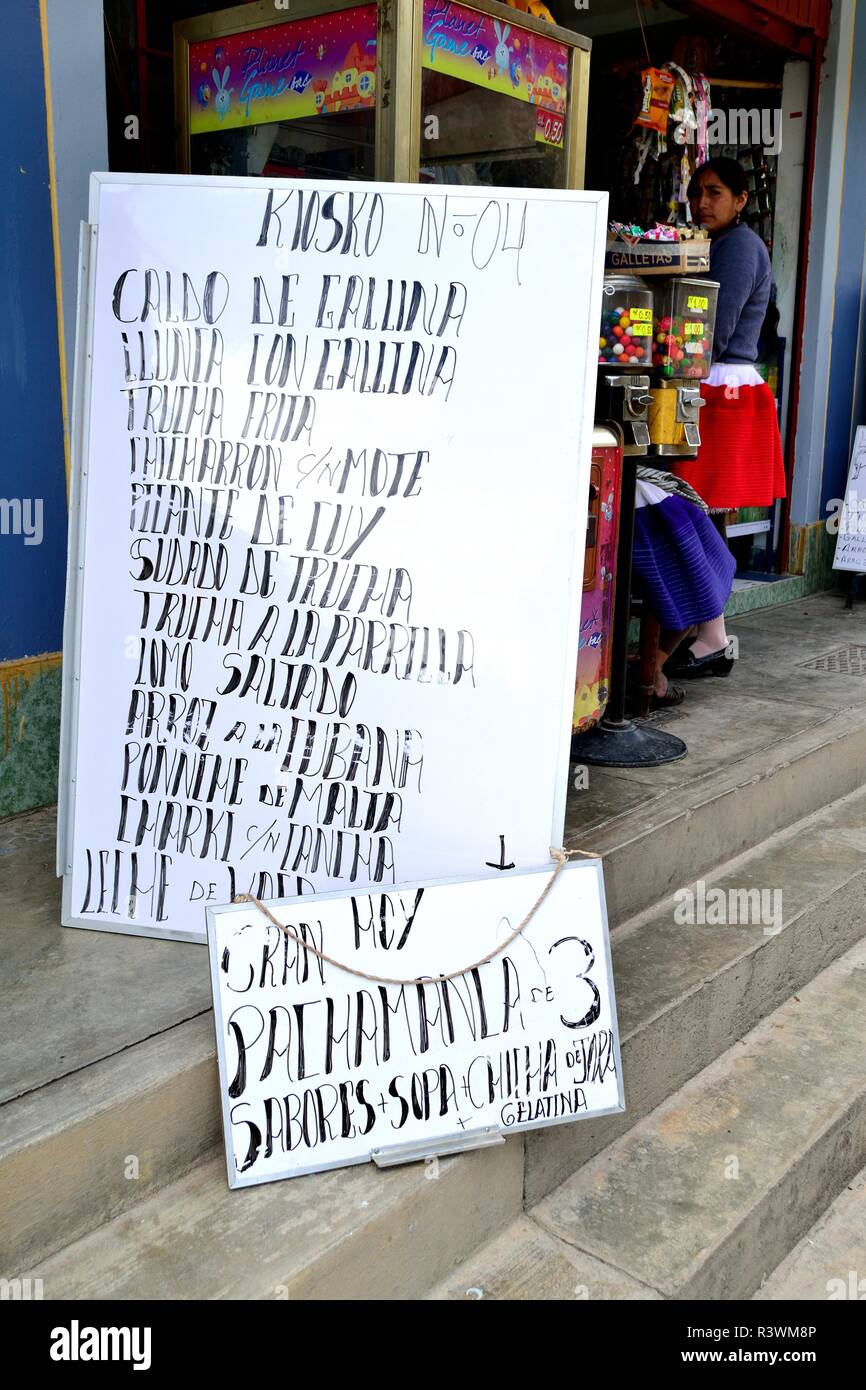 Planet Game sac
Planet Game sac
0.50
KIOSKO Nº 04
CALDO DE GALLINA
LLUNCA CON GALLINA
TRUCHA FRITA
CHICHARRON C/N MOTE
PICANTE DE CUY
SUDADO DE TRUCHA
TRUCHA A LA PARRILLA
LOMO SALTADO
ARROZ A LA CUBANA
PONNCHE DE MALTA
CHARKI C/N CANCHA
LECHE DE
HOY
GRAN
PACHAMANCA DE 3
SABORES + SOPA + CHICHA DE JORA
+ GELATINA
GALLETAS
0.50
0.50
1.00
1.00
alamy
Image ID: R3WM8P
www.alamy.com